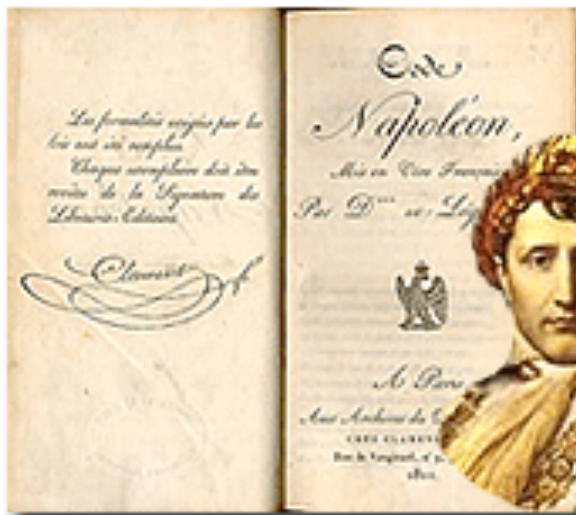 Les formalités exigées par les
lois ont été remplies.
Chaque exemplaire doit être
revêtu de la Signature du
Libraire-Editeur.
Clament f
Code
Napoléon,
Mis en Vers Français
Par D***
A Paris
Aux Archives du
CHEZ CLAMENT
Rue de Vaugirard, nº 9